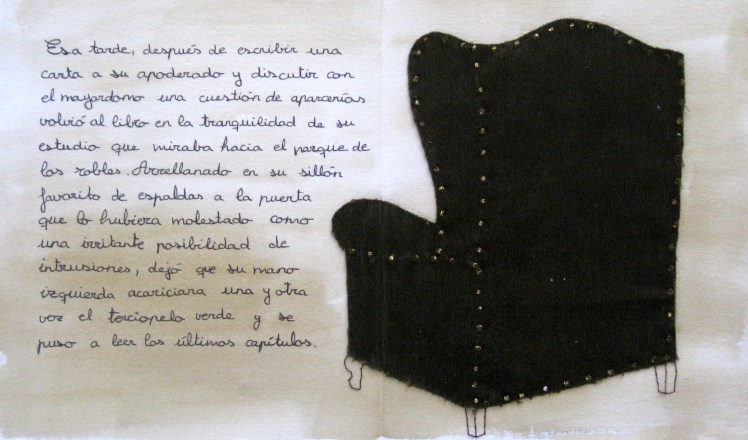 Esa tarde, después de escribir una
carta a su apoderado y discutir con
el mayordomo una cuestión de aparcerías
volvió al libro en la tranquilidad de su
estudio que miraba hacia el parque de
los robles. Arrellanado en su sillón
favorito de espaldas a la puerta
que lo hubiera molestado como
una irritante posibilidad de
intrusiones, dejó que su mano
izquierda acariciara una y otra
vez el terciopelo verde y se
puso a leer los últimos capítulos.